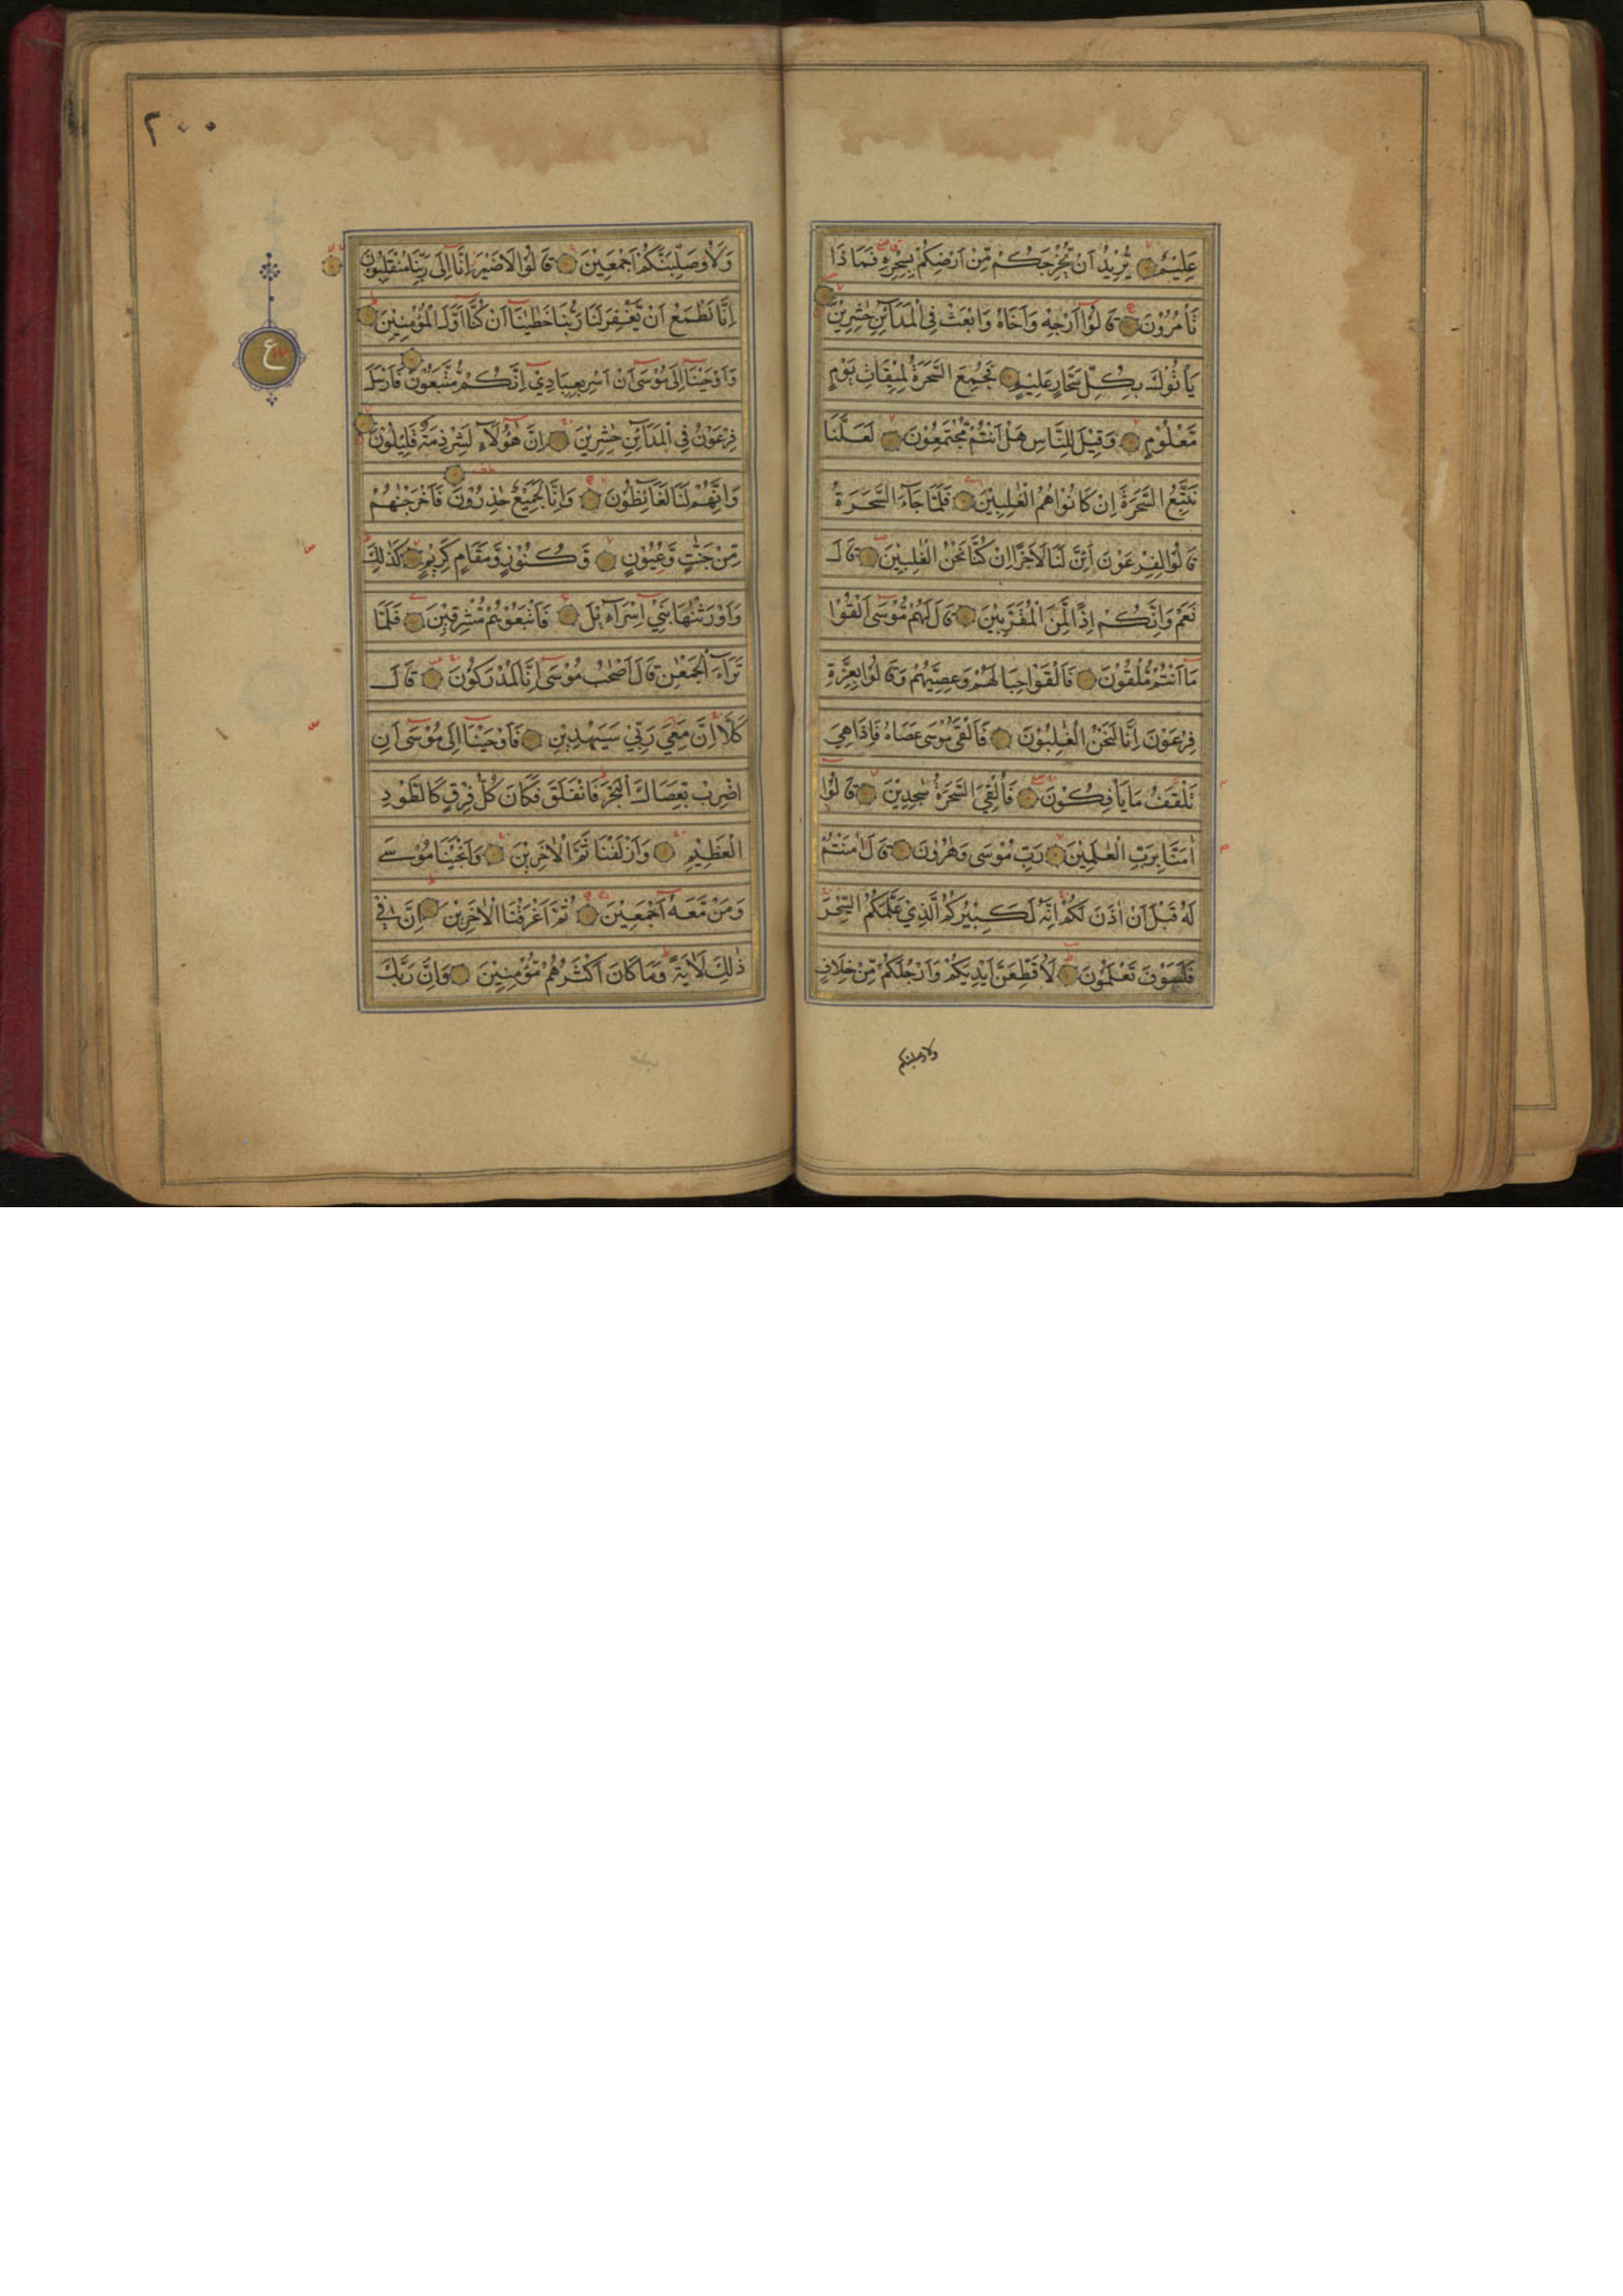 عَلِيْمٌ يُّرِيْدُ اَنْ يُّخْرِجَكُمْ مِّنْ اَرْضِكُمْ بِسِحْرِهٖ فَمَا ذَا
تَأْمُرُوْنَ قَالُوْا اَرْجِهْ وَاَخَاهُ وَابْعَثْ فِي الْمَدَآئِنِ حٰشِرِيْنَ
يَأْتُوْكَ بِكُلِّ سَحَّارٍ عَلِيْمٍ فَجُمِعَ السَّحَرَةُ لِمِيْقَاتِ يَوْمٍ
مَّعْلُوْمٍ وَّقِيْلَ لِلنَّاسِ هَلْ اَنْتُمْ مُّجْتَمِعُوْنَ لَعَلَّنَا
نَتَّبِعُ السَّحَرَةَ اِنْ كَانُوْا هُمُ الْغٰلِبِيْنَ فَلَمَّا جَآءَ السَّحَرَةُ
قَالُوْا لِفِرْعَوْنَ اَئِنَّ لَنَا لَاَجْرًا اِنْ كُنَّا نَحْنُ الْغٰلِبِيْنَ قَالَ
نَعَمْ وَاِنَّكُمْ اِذًا لَّمِنَ الْمُقَرَّبِيْنَ قَالَ لَهُمْ مُّوْسٰى اَلْقُوْا
مَا اَنْتُمْ مُّلْقُوْنَ فَاَلْقَوْا حِبَالَهُمْ وَعِصِيَّهُمْ وَقَالُوْا بِعِزَّةِ
فِرْعَوْنَ اِنَّا لَنَحْنُ الْغٰلِبُوْنَ فَاَلْقٰى مُوْسٰى عَصَاهُ فَاِذَا هِيَ
تَلْقَفُ مَا يَأْفِكُوْنَ فَاُلْقِيَ السَّحَرَةُ سٰجِدِيْنَ قَالُوْا
اٰمَنَّا بِرَبِّ الْعٰلَمِيْنَ رَبِّ مُوْسٰى وَهٰرُوْنَ قَالَ اٰمَنْتُمْ
لَهٗ قَبْلَ اَنْ اٰذَنَ لَكُمْ اِنَّهٗ لَكَبِيْرُكُمُ الَّذِيْ عَلَّمَكُمُ السِّحْرَ
فَلَسَوْفَ تَعْلَمُوْنَ لَاُقَطِّعَنَّ اَيْدِيَكُمْ وَاَرْجُلَكُمْ مِّنْ خِلَافٍ
ولاوصلبنكم
٢٠٠
وَّلَاُوصَلِّبَنَّكُمْ اَجْمَعِيْنَ قَالُوْا لَا ضَيْرَ اِنَّا اِلٰى رَبِّنَا مُنْقَلِبُوْنَ
اِنَّا نَطْمَعُ اَنْ يَّغْفِرَ لَنَا رَبُّنَا خَطٰيٰنَا اَنْ كُنَّا اَوَّلَ الْمُؤْمِنِيْنَ
ع
وَاَوْحَيْنَا اِلٰى مُوْسٰى اَنْ اَسْرِ بِعِبَادِيْ اِنَّكُمْ مُّتَّبَعُوْنَ فَاَرْسَلَ
فِرْعَوْنُ فِي الْمَدَآئِنِ حٰشِرِيْنَ اِنَّ هٰؤُلَآءِ لَشِرْذِمَةٌ قَلِيْلُوْنَ
وَاِنَّهُمْ لَنَا لَغَآئِظُوْنَ وَاِنَّا لَجَمِيْعٌ حٰذِرُوْنَ فَاَخْرَجْنٰهُمْ
مِّنْ جَنّٰتٍ وَّعُيُوْنٍ وَّكُنُوْزٍ وَّمَقَامٍ كَرِيْمٍ كَذٰلِكَ
وَاَوْرَثْنٰهَا بَنِيْ اِسْرَآءِيْلَ فَاَتْبَعُوْهُمْ مُّشْرِقِيْنَ فَلَمَّا
تَرَآءَ الْجَمْعٰنِ قَالَ اَصْحٰبُ مُوْسٰى اِنَّا لَمُدْرَكُوْنَ قَالَ
كَلَّا اِنَّ مَعِيَ رَبِّيْ سَيَهْدِيْنِ فَاَوْحَيْنَا اِلٰى مُوْسٰى اَنِ
اضْرِبْ بِعَصَاكَ الْبَحْرَ فَانْفَلَقَ فَكَانَ كُلُّ فِرْقٍ كَالطَّوْدِ
الْعَظِيْمِ وَاَزْلَفْنَا ثَمَّ الْاٰخَرِيْنَ وَاَنْجَيْنَا مُوْسٰى
وَمَنْ مَّعَهٗ اَجْمَعِيْنَ ثُمَّ اَغْرَقْنَا الْاٰخَرِيْنَ اِنَّ فِيْ
ذٰلِكَ لَاٰيَةً وَّمَا كَانَ اَكْثَرُهُمْ مُّؤْمِنِيْنَ وَاِنَّ رَبَّكَ